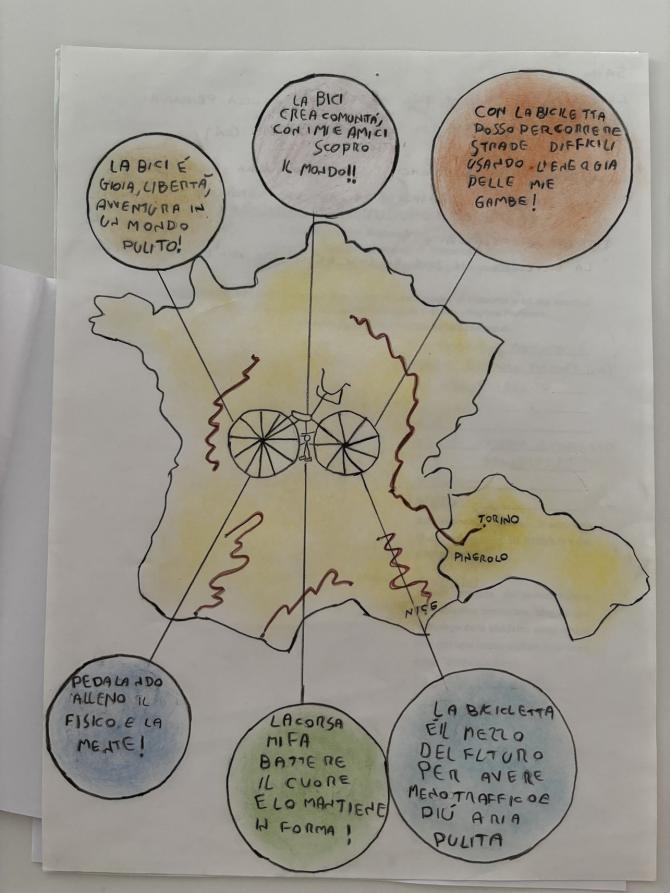 LA BICI É
GIOIA, LIBERTÁ,
AVVENTURA IN
UN MONDO
PULITO!
LA BICI
CREA COMUNITÁ,
CON I MIEI AMICI
SCOPRO
IL MONDO!!
CON LA BICILETTA
POSSO PERCORRERE
STRADE DIFFICILI
USANDO L'ENERGIA
DELLE MIE
GAMBE!
TORINO
PINEROLO
NICE
PEDALANDO
ALLENO IL
FISICO E LA
MENTE!
LA CORSA
MI FA
BATTERE
IL CUORE
E LO MANTIENE
IN FORMA!
LA BICICLETTA
É IL MEZZO
DEL FUTURO
PER AVERE
MENO TRAFFICO E
PIÚ ARIA
PULITA